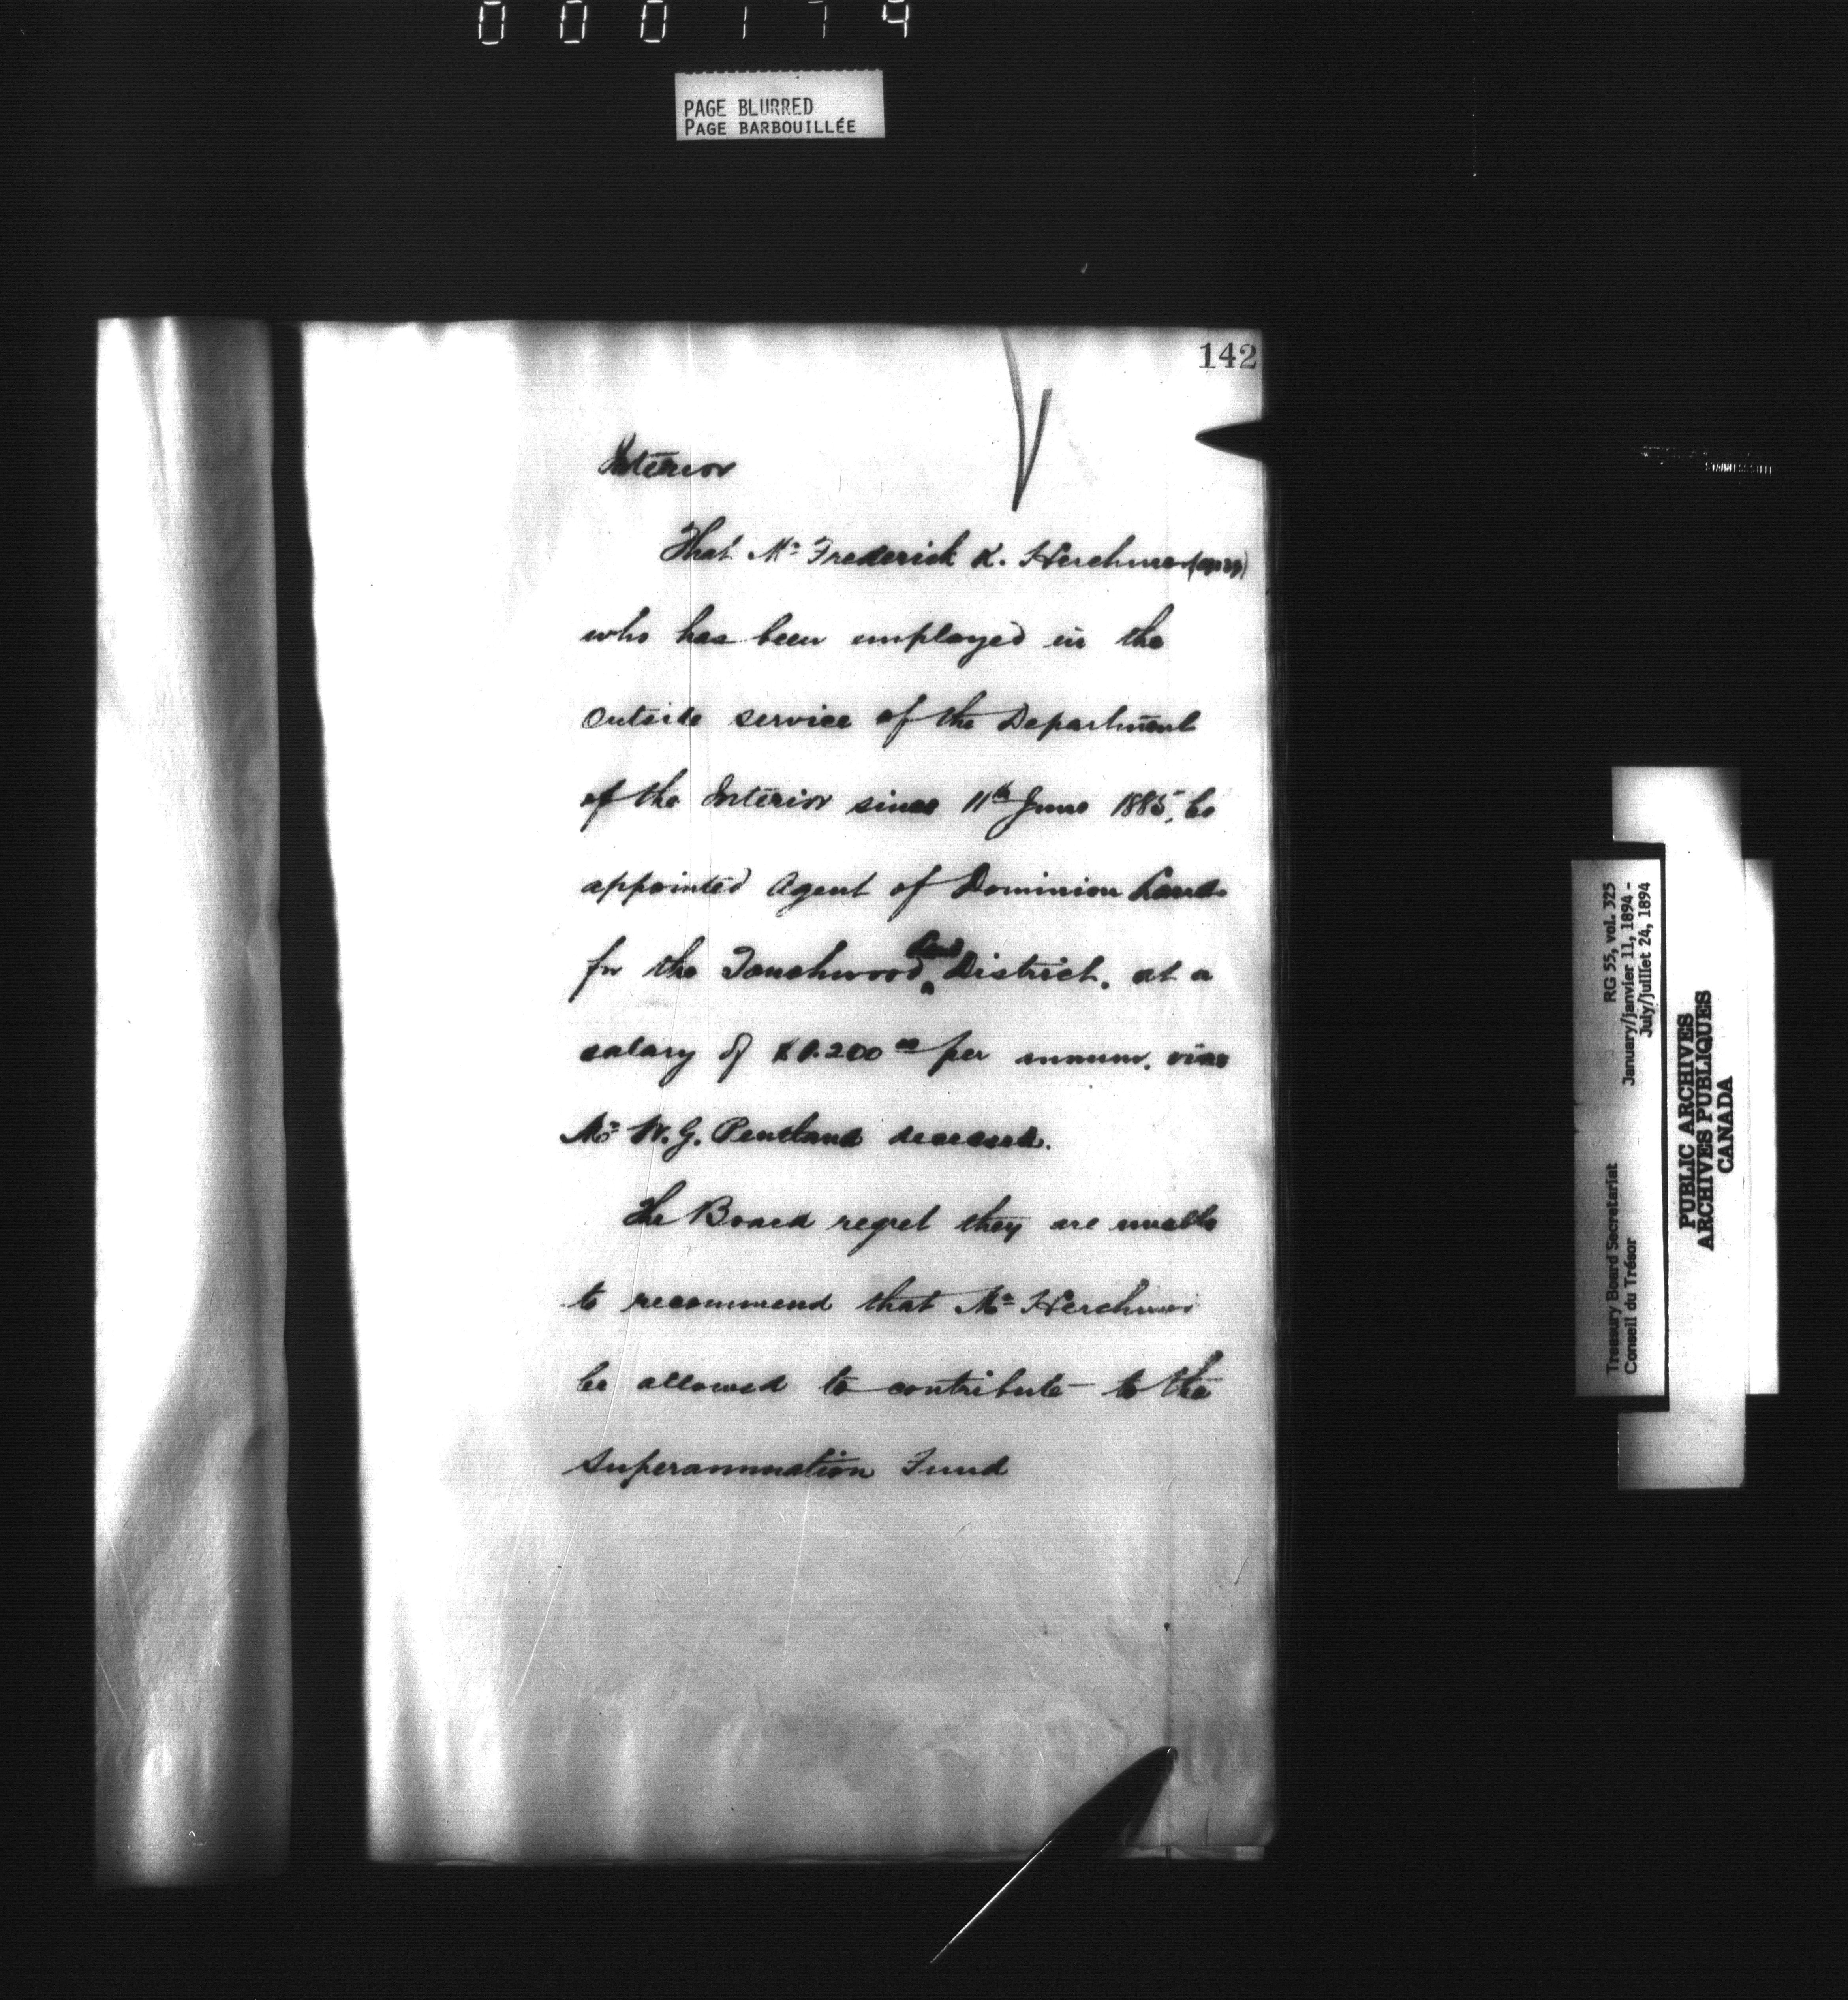 000174
PAGE BLURRED
PAGE BARBOUILLÉE
142
Interior
That Mr Frederick K. Herchmer
who has been employed in the
outside service of the Department
of the Interior since 11th June 1885, be
appointed Agent of Dominion Lands
for the Touchwood Land District. at a
salary of $1.200 00 per annum. vice
Mr W. G. Pentland deceased.
The Board regret they are unable
to recommend that Mr Herchmer
be allowed to contribute to the
Superannuation Fund
Treasury Board Secretariat RG 55, vol. 325
Conseil du Trésor January/janvier 11, 1894 -
July/juillet 24, 1894
PUBLIC ARCHIVES
ARCHIVES PUBLIQUES
CANADA